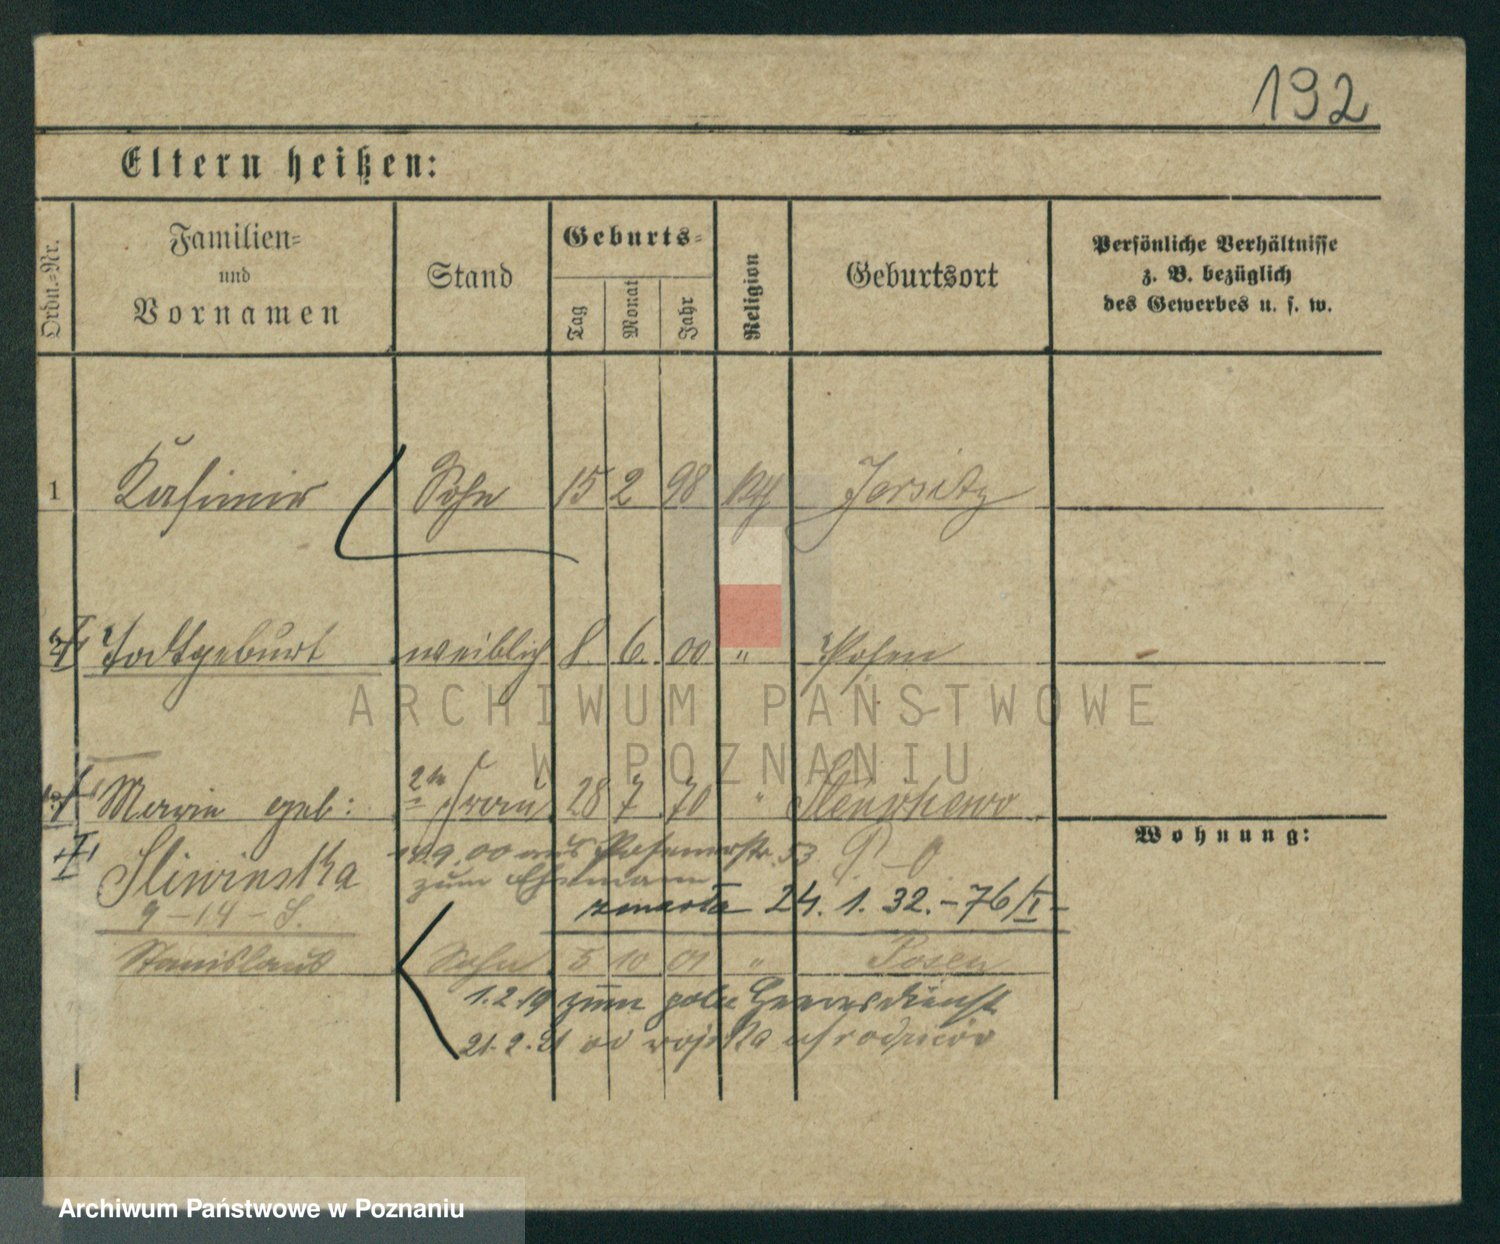 192
Eltern heißen:
Ordn.-Nr.
Familien-
und
Vornamen
Stand
Geburts-
Tag
Monat
Jahr
Religion
Geburtsort
Persönliche Verhältnisse
z. B. bezüglich
des Gewerbes u. s. w.
1 Kasimir Sohn 15 2 98 Jersitz
Todtgeburt weiblich 8. 6. 00 " Posen
ARCHIWUM PAŃSTWOWE
W POZNANIU
Marie geb: 2te Frau 28 7 70 "
Wohnung:
Sliwinska 14.9.00 aus Posenerstr. 53
zum Ehemann
9-14-S. zmarła 24. 1. 32. - 76/I -
Stanislaus Sohn 5 10 01 " Posen
1.2.19 zum poln Heeresdienst
21.2.21 od wojska
Archiwum Państwowe w Poznaniu